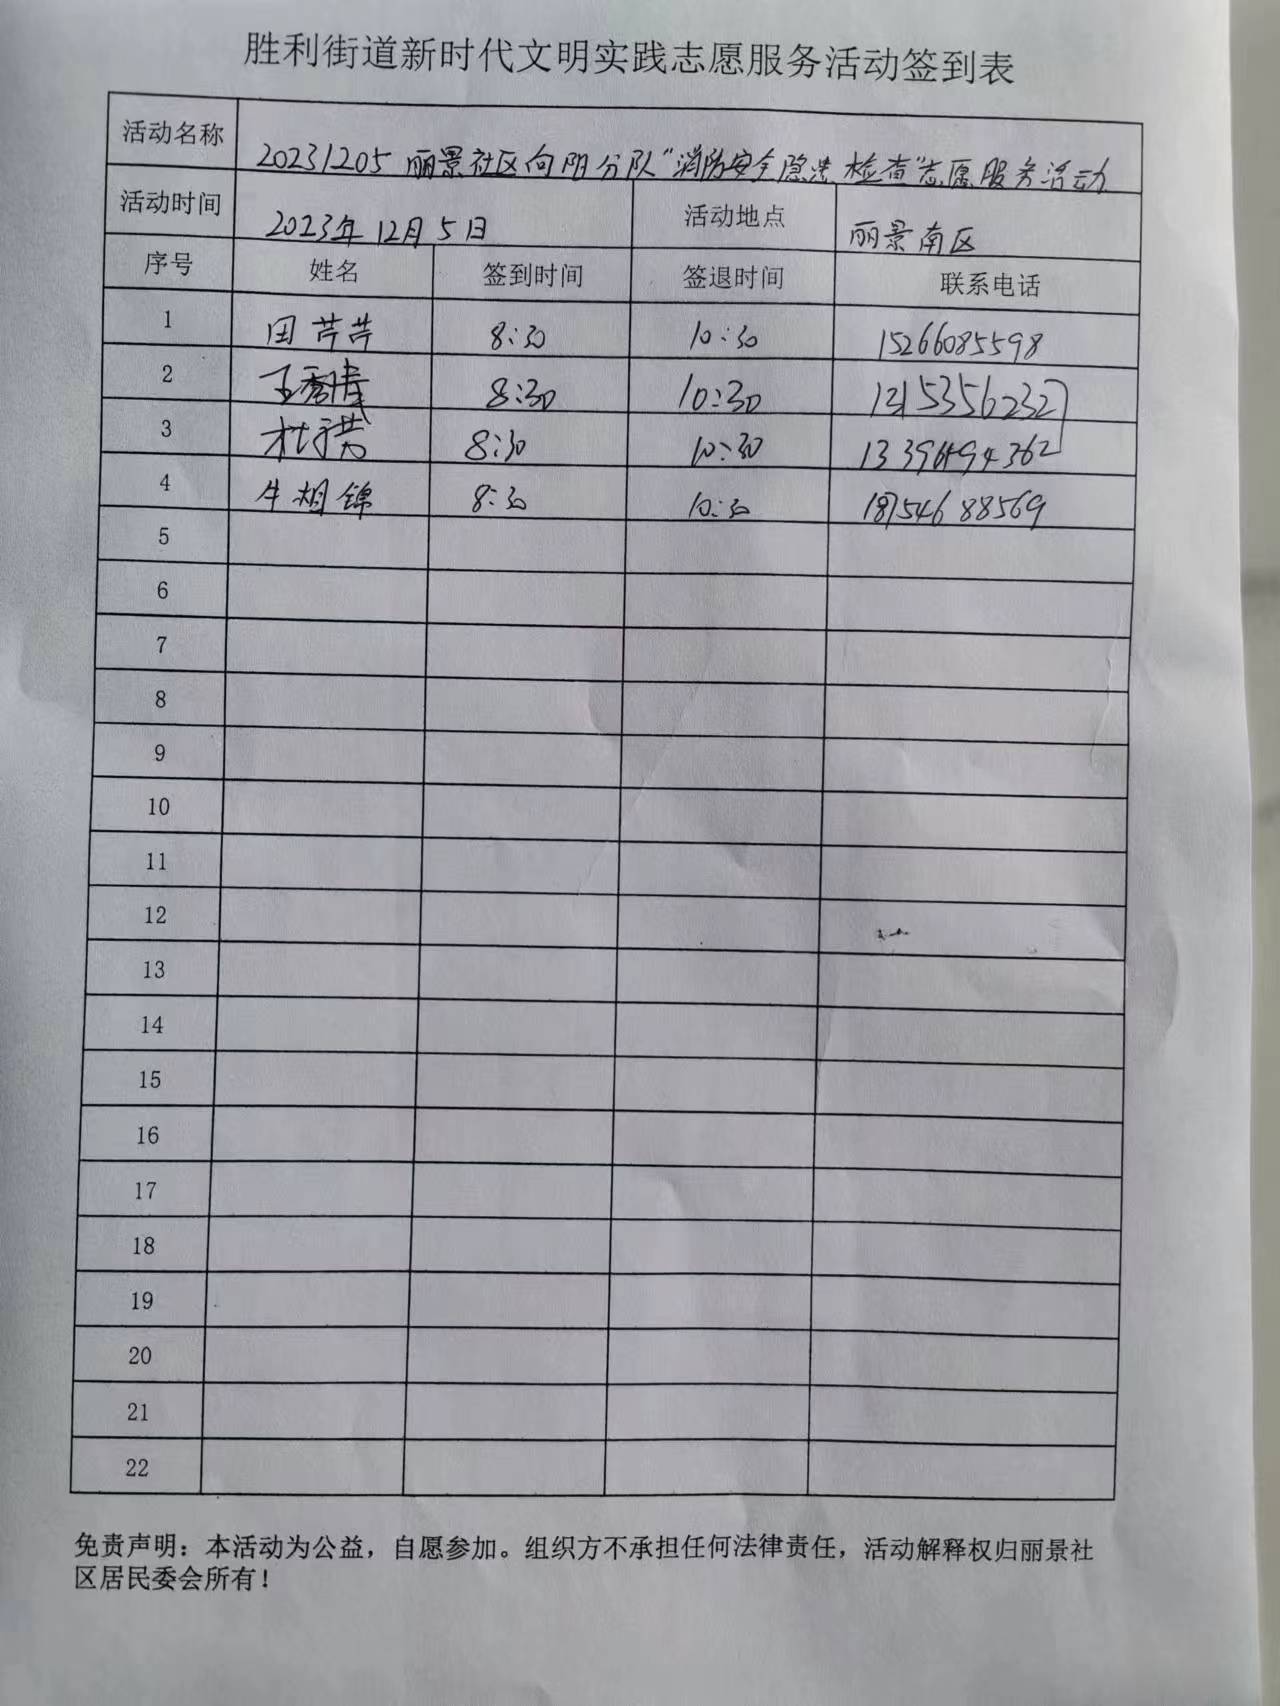 胜利街道新时代文明实践志愿服务活动签到表
活动名称 20231205 丽景社区向阳分队“消防安全隐患检查”志愿服务活动
活动时间 2023年12月5日 活动地点 丽景南区
序号 姓名 签到时间 签退时间 联系电话
1 田芹芹 8:30 10:30 15266085598
2 8:30 10:30
3 8:30 10:30
4 牛相锦 8:30 10:30 18754688569
5
6
7
8
9
10
11
12
13
14
15
16
17
18
19
20
21
22
免责声明：本活动为公益，自愿参加。组织方不承担任何法律责任，活动解释权归丽景社
区居民委会所有！